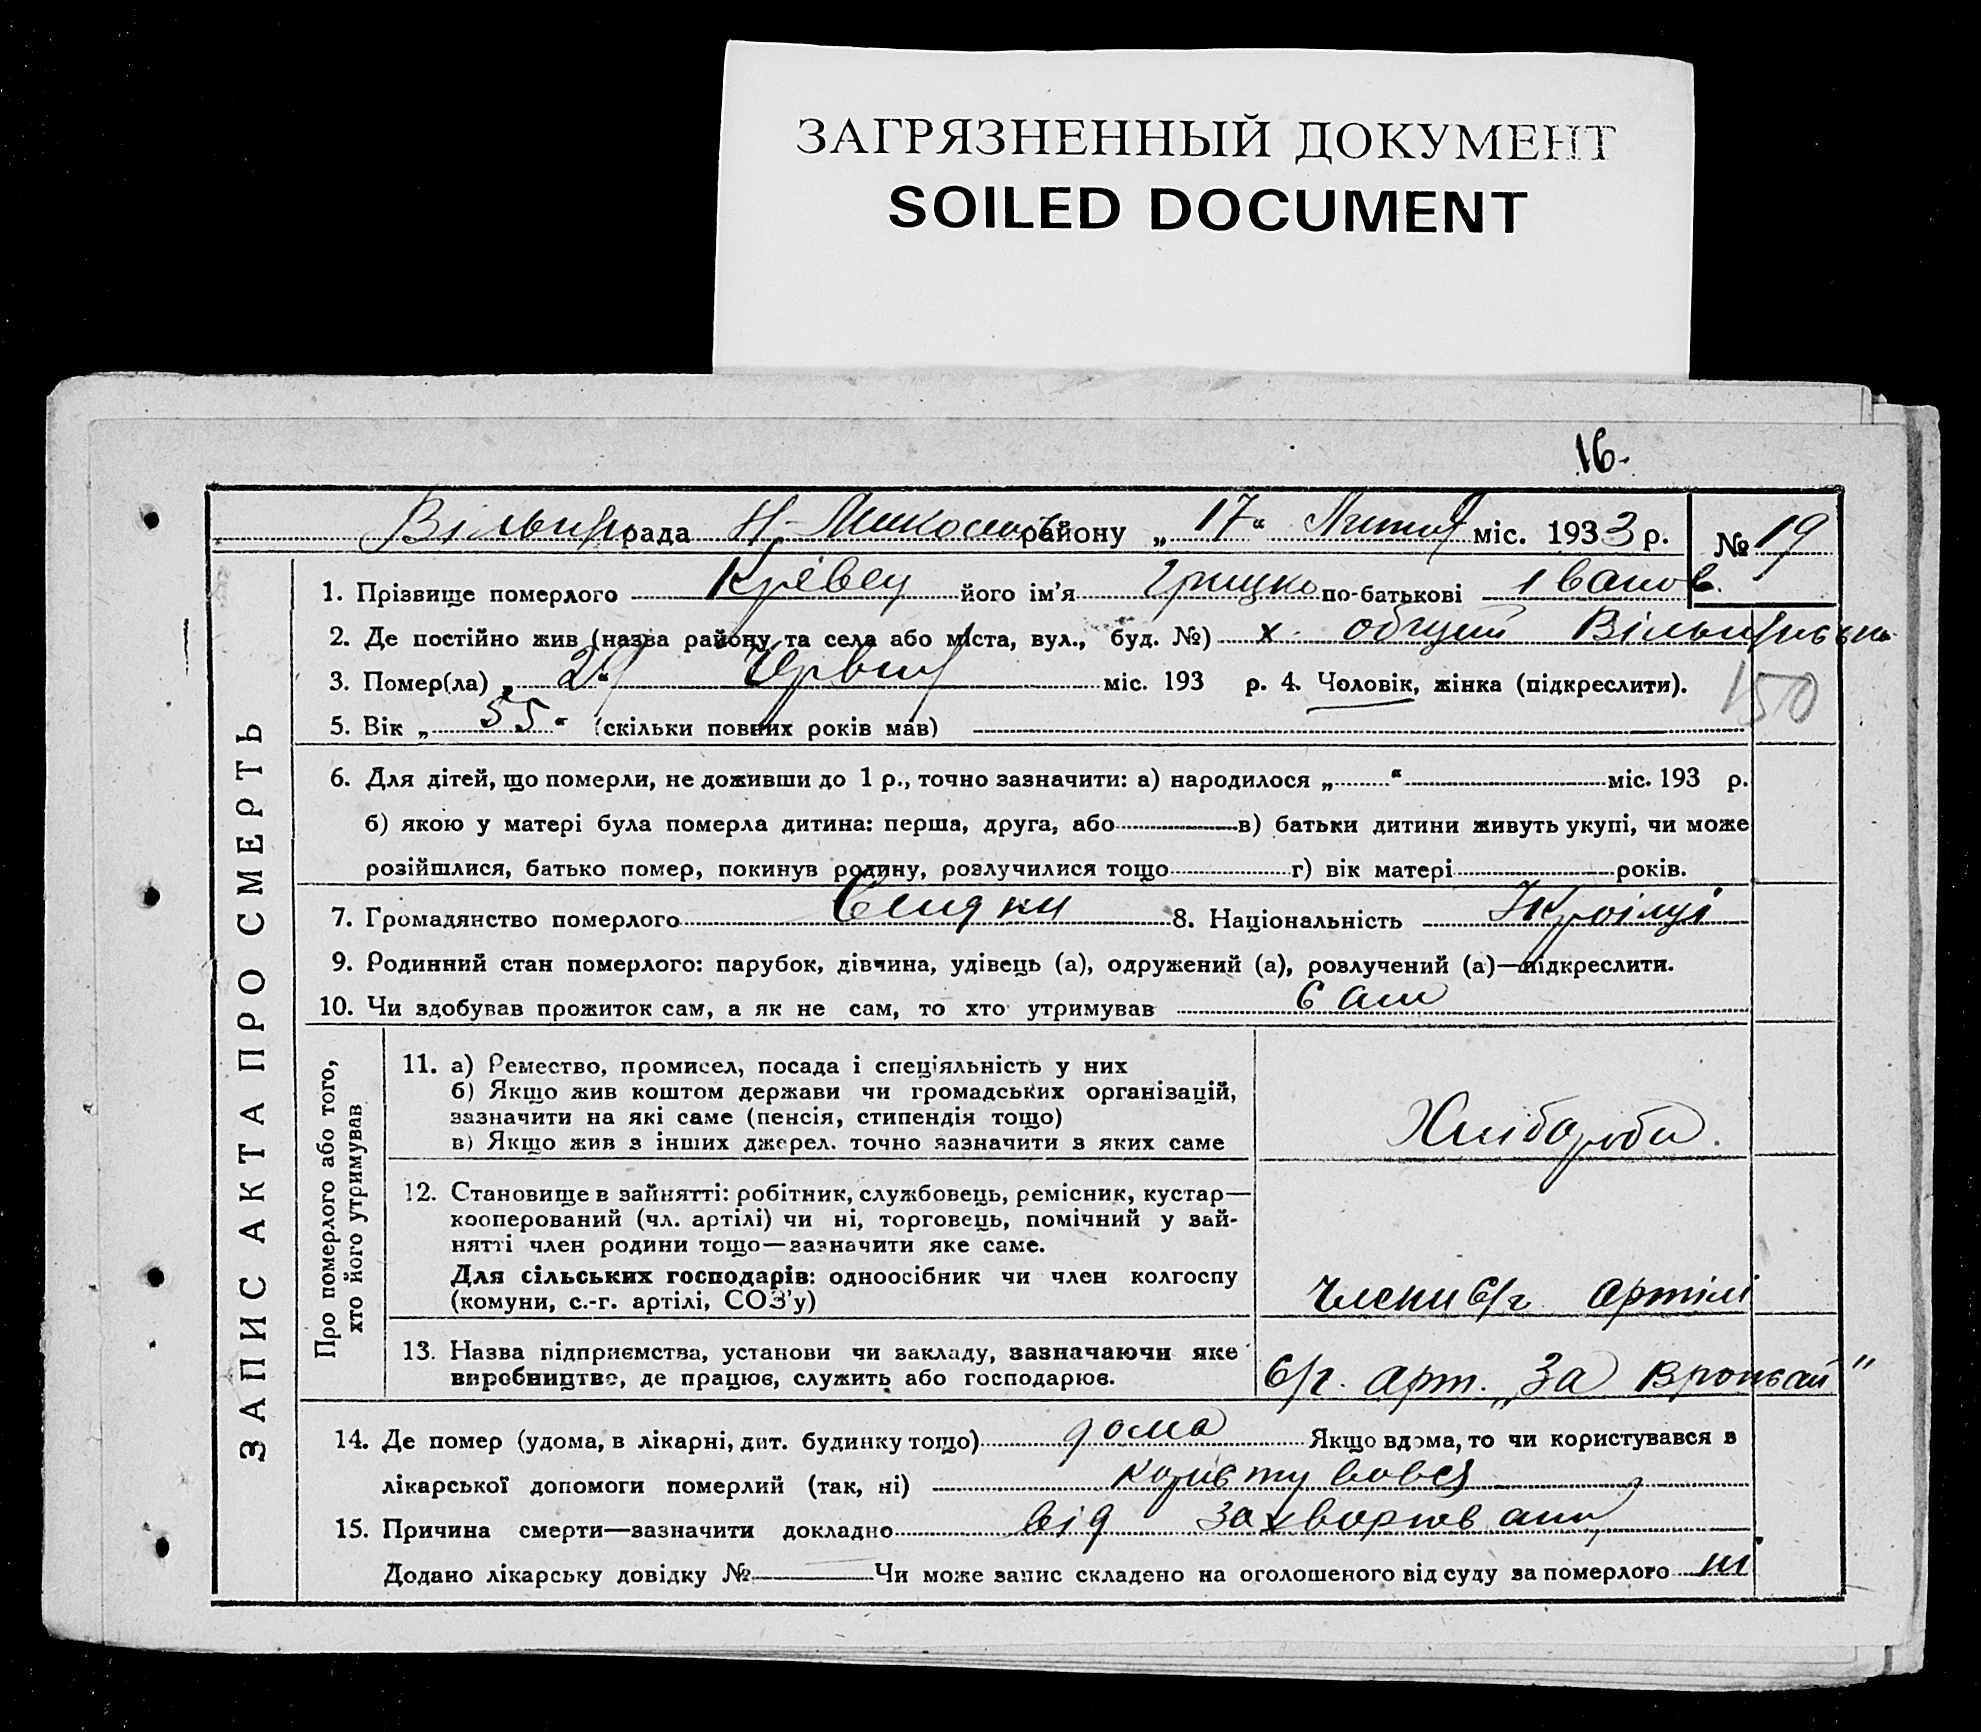 ЗАГРЯЗНЕННЫЙ ДОКУМЕНТ
SOILED DOCUMENT
16.
рада району „17“ міс. 1933 р. № 19
1. Прізвище померлого його ім'я Грицко по-батькові Іванов.
2. Де постійно жив (назва району та села або міста, вул., буд. №) х.
3. Помер(ла) міс. 193 р. 4. Чоловік, жінка (підкреслити).
150
5. Вік „55“ (скільки повних років мав)
6. Для дітей, що померли, не доживши до 1 р., точно зазначити: а) народилося „ “ міс. 193 р.
б) якою у матері була померла дитина: перша, друга, або в) батьки дитини живуть укупі, чи може
розійшлися, батько помер, покинув родину, розлучилися тощо г) вік матері років.
7. Громадянство померлого 8. Національність
9. Родинний стан померлого: парубок, дівчина, удівець (а), одружений (а), розлучений (а)—підкреслити.
10. Чи здобував прожиток сам, а як не сам, то хто утримував сам
ЗАПИС АКТА ПРО СМЕРТЬ
Про померлого або того,
хто його утримував
11. а) Ремество, промисел, посада і спеціяльність у них
б) Якщо жив коштом держави чи громадських організацій,
зазначити на які саме (пенсія, стипендія тощо)
в) Якщо жив з інших джерел. точно зазначити з яких саме
12. Становище в зайнятті: робітник, службовець, ремісник, кустар—
кооперований (чл. артілі) чи ні, торговець, помічний у зай-
нятті член родини тощо—зазначити яке саме.
Для сільських господарів: одноосібник чи член колгоспу
(комуни, с.-г. артілі, СОЗ'у)
члени с/г артілі
13. Назва підприємства, установи чи закладу, зазначаючи яке
виробництво, де працює, служить або господарює.
с/г. арт. „За
14. Де помер (удома, в лікарні, дит. будинку тощо) дома Якщо вдома, то чи користувався в
лікарської допомоги померлий (так, ні)
15. Причина смерти—зазначити докладно від
Додано лікарську довідку № Чи може запис складено на оголошеного від суду за померлого ні